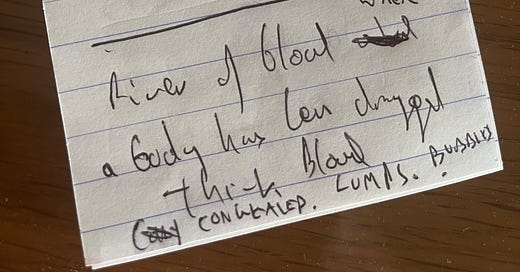 when
River of blood
a body has been dragged
thick Blood
CONGEALED. LUMPS. BUBBLES